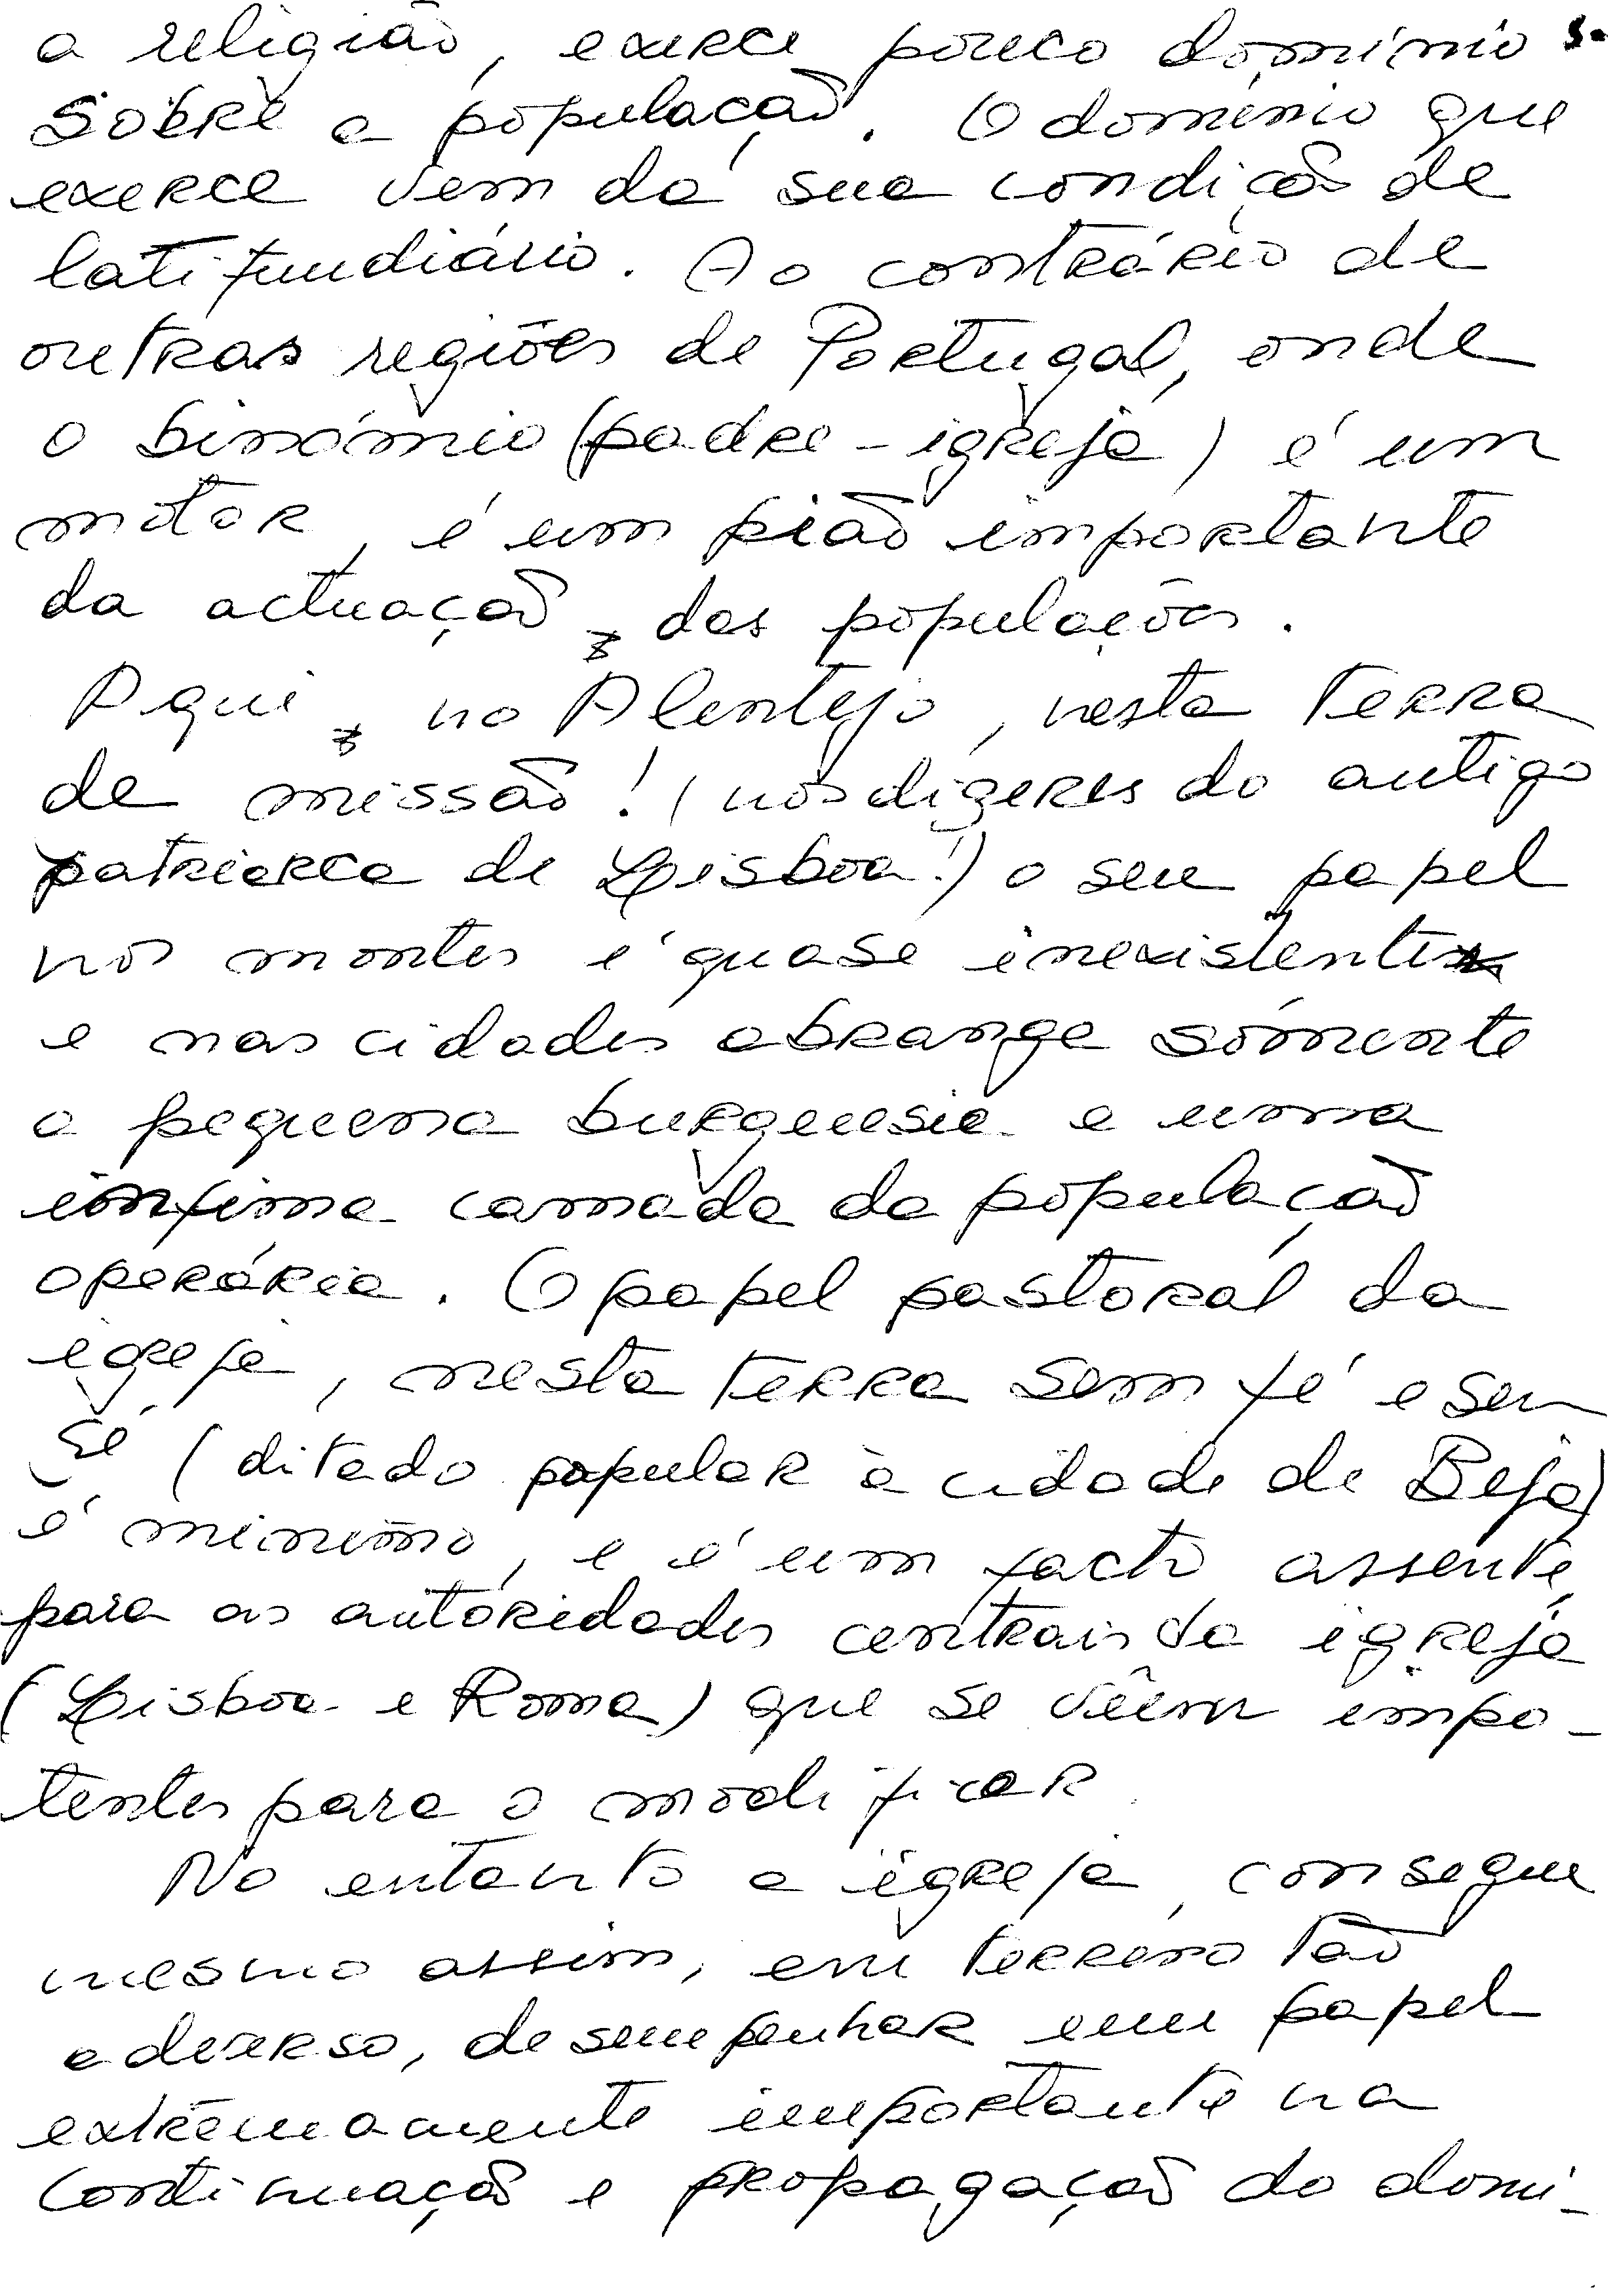 a religião, exerce pouco domínio 5.
sobre a população. O domínio que
exerce vem da sua condição de
latifundiário. Ao contrário de
outras regiões de Portugal, onde
o binómio (padre - igreja) é um
motor, é um pião importante
da actuação, das populações.
Aqui, no Alentejo, nesta terra
de missão! (nos dizeres do antigo
patriarca de Lisboa!) o seu papel
nos montes é quase inexistente
e nas cidades abrange sómente
a pequena burguesia e uma
ínfima camada da população
operária. O papel pastoral da
igreja, nesta terra sem fé e sem
Sé (ditado popular à cidade de Beja)
é mínimo, e é um facto assente,
para as autoridades centrais da igreja
(Lisboa e Roma) que se vêem impo-
tentes para o modificar.
No entanto a igreja, consegue
mesmo assim, em terreno tão
adverso, desempenhar um papel
extremamente importante na
continuação e propagação do domí-